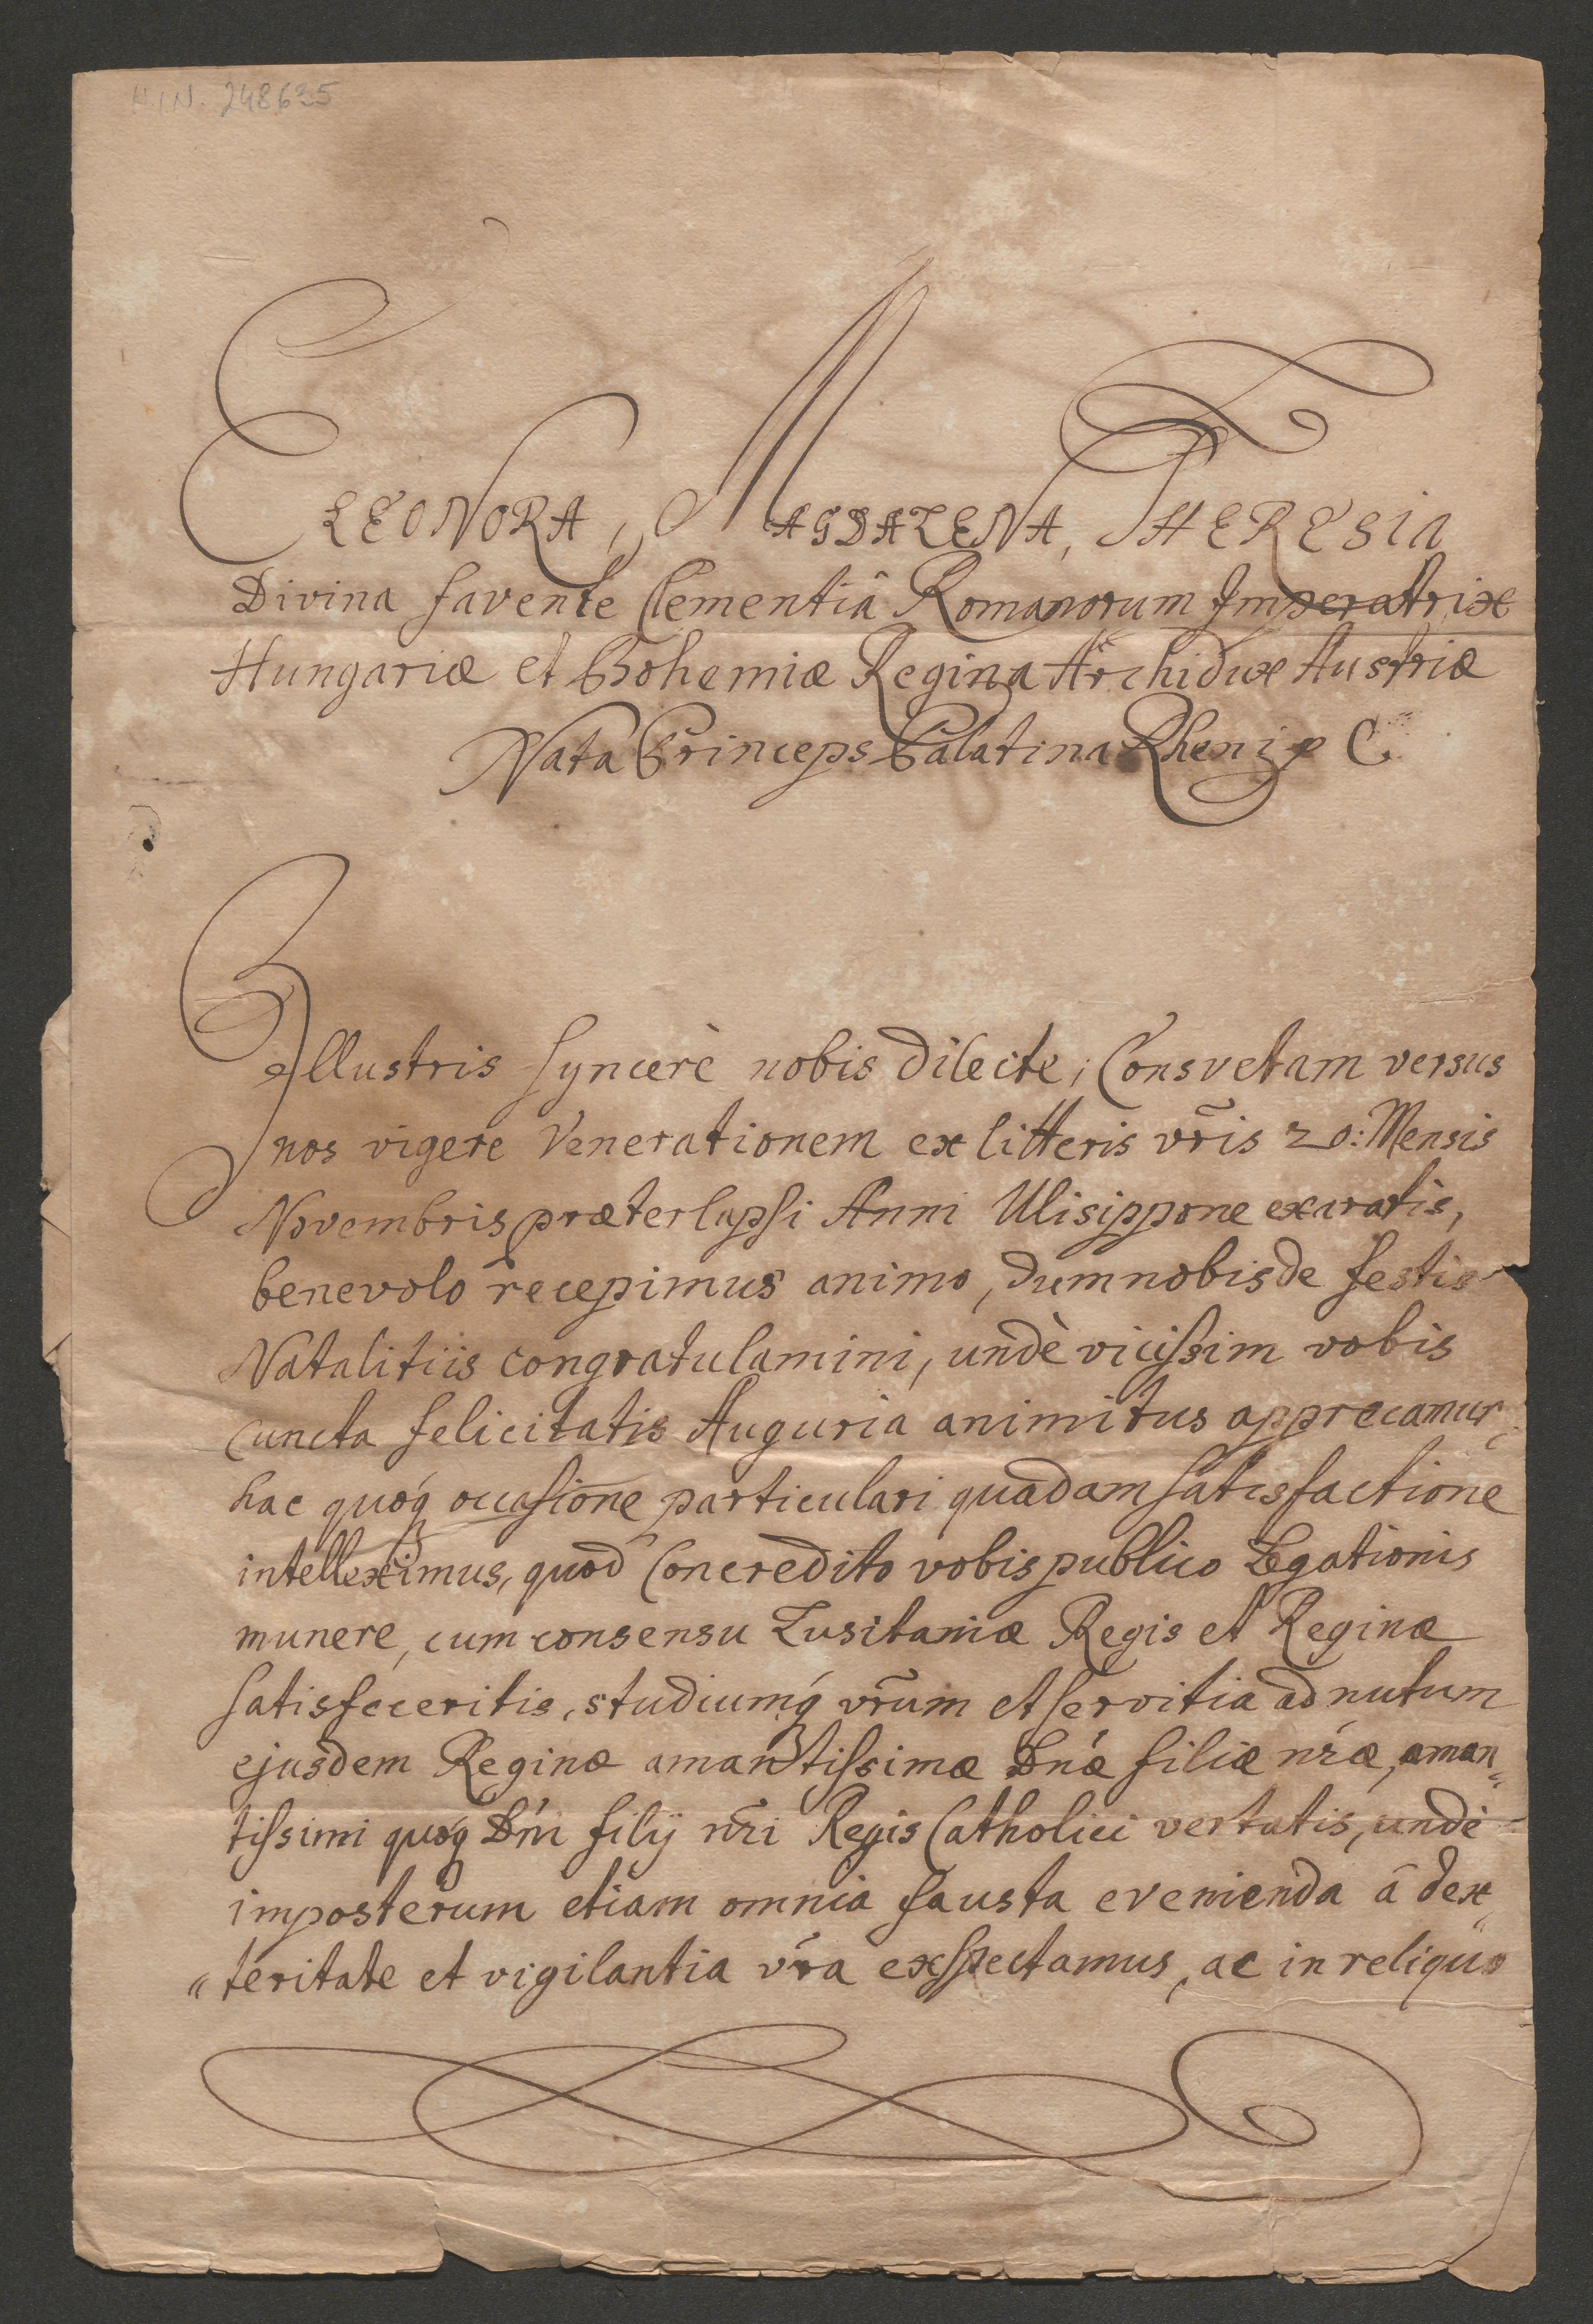 H.I.N. 248635
ELEONORA, MAGDALENA, THERESIA
Divina favente Clementiâ Romanorum Imperatrix
Hungariæ et Bohemiæ Regina Archidux Austriæ
Nata Princeps Palatina Rheni p C.
Illustris syncerè nobis dilecte; Consvetam versus
nos vigere Venerationem ex litteris vr̃is 20: Mensis
Novembris præterlapsi Anni Ulisippone exaratis,
benevolo recepimus animo, dum nobis de festis
Natalitiis congratulamini, undè vicissim vobis
cuncta felicitatis Auguria animitus apprecamur;
hac quoq́ occasione particulari quadam satisfactione
intelleximus, quod Concredito vobis publico Legationis
munere, cum consensu Lusitaniæ Regis et Reginæ
satisfeceritis, studiumq́ vr̃um et servitia ad nutum
ejusdem Reginæ amantissimæ Dnǽ filiæ nr̃æ, aman„
tissimi quoq́ Dńi filÿ nr̃i Regis Catholici vertatis, undè
imposterum etiam omnia fausta evenienda â dex„
„teritate et vigilantia vr̃a exspectamus, ac in reliquo